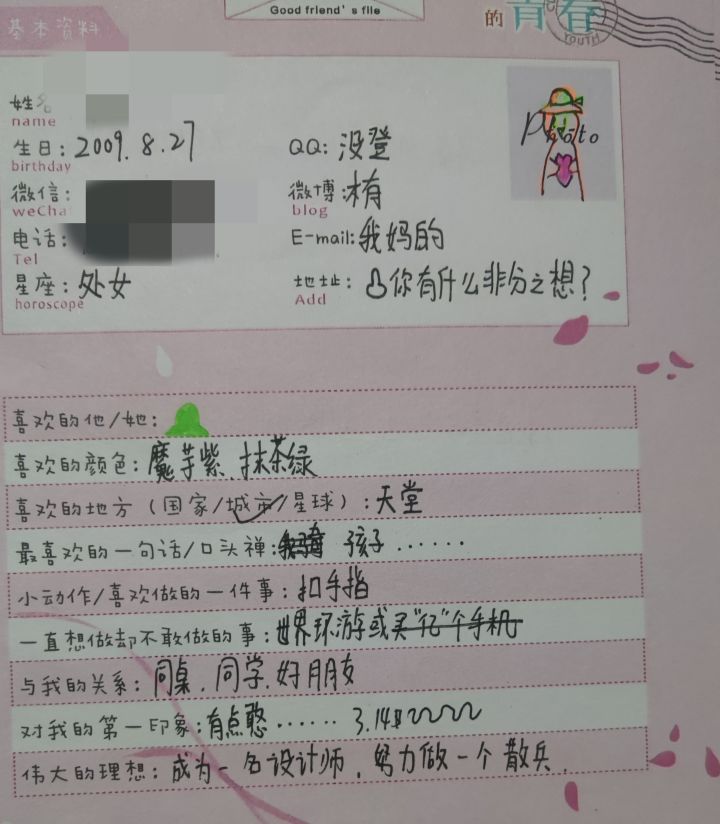 Good friend's file
的青春
YOUTH
基本资料
姓名
name
Photo
生日: 2009. 8. 27
birthday
QQ: 没登
微信:
weCha
微博: 木有
blog
电话:
Tel
E-mail: 我妈的
星座: 处女
horoscope
地址: 你有什么非分之想?
Add
喜欢的他/她:
喜欢的颜色: 魔芋紫、抹茶绿
喜欢的地方 (国家/城市/星球): 天堂
最喜欢的一句话/口头禅: 孩子 ......
小动作/喜欢做的一件事: 扣手指
一直想做却不敢做的事: 世界环游或买“亿”个手机
与我的关系: 同桌、同学、好朋友
对我的第一印象: 有点憨 ...... 3.14
伟大的理想: 成为一名设计师,努力做一个散兵.